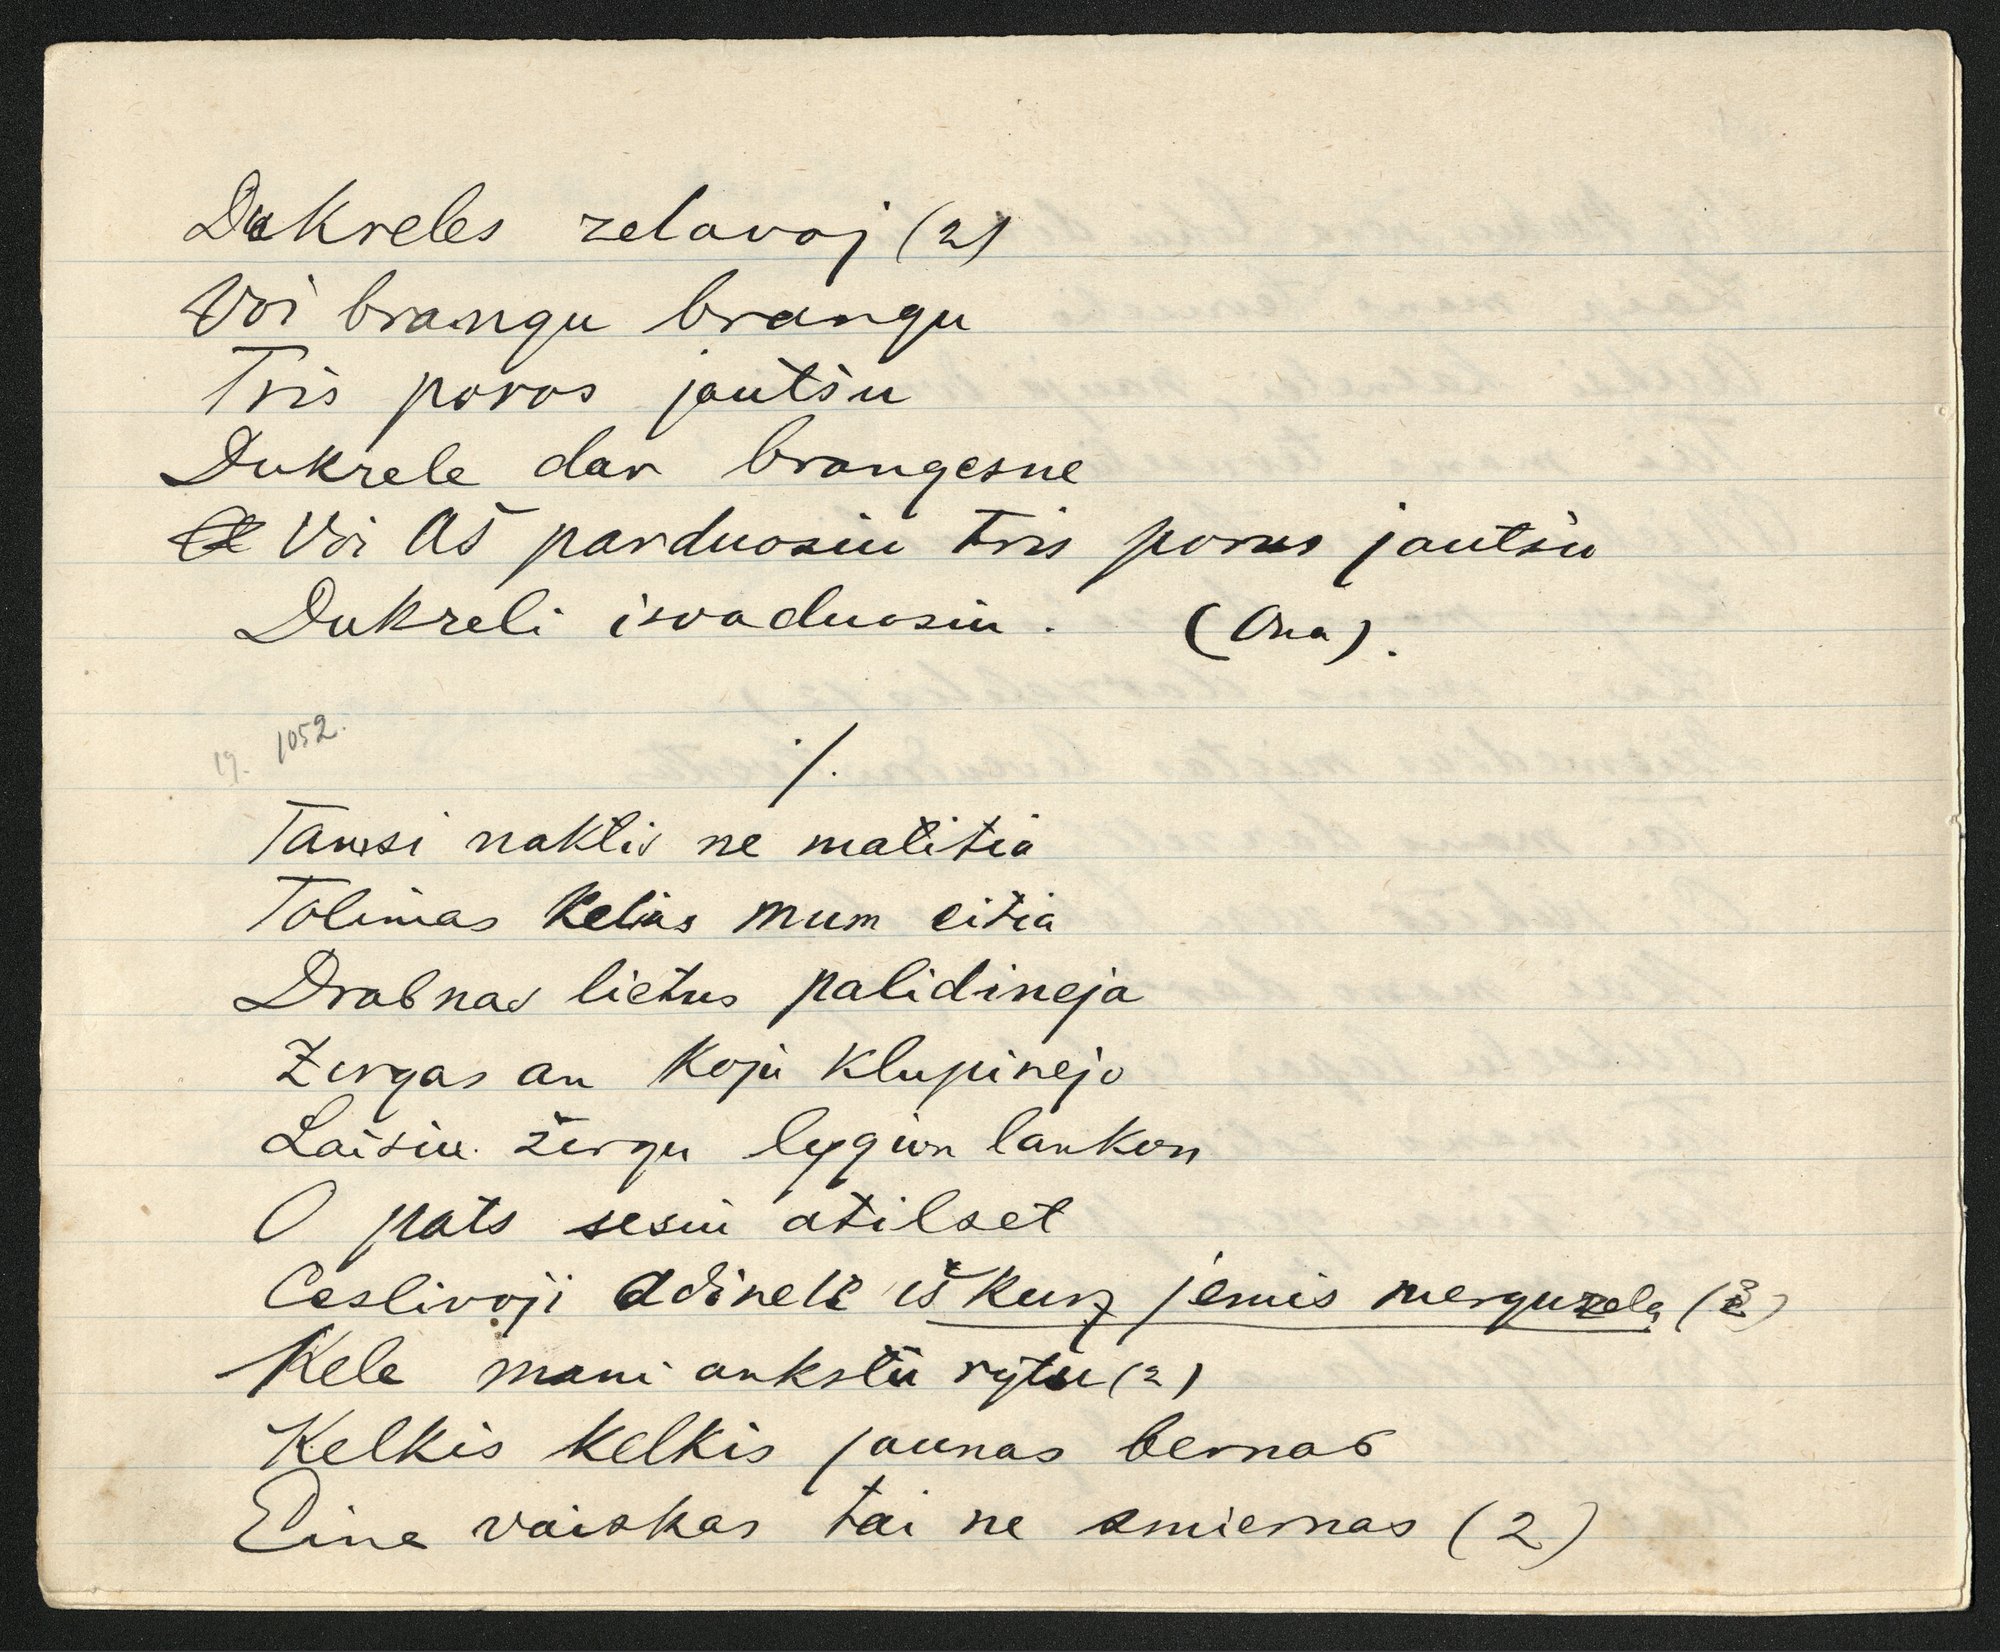 Dukreles zelavoj (2)
Voi brangu brangu
Tris poros jautšu
Dukrele dar brangesne
Voi Aš parduosiu tris poras jautsiu
Dukreli isvaduosiu. (Ona).
19. 1052.
./.
Tamsi naktis ne matitia
Tolimas kelias mum eitia
Drabnas lietus palidineja
Zirgas an koju klupinejo
Laisiu žirgu lygion lankon
O pats sesiu atilset
Ceslivoji adinele iš kurz jemis merguzela (2)
Kele mani ankstu rytu (2)
Kelkis kelkis jaunas bernas
Eina vaiskas tai ne smiernas (2)